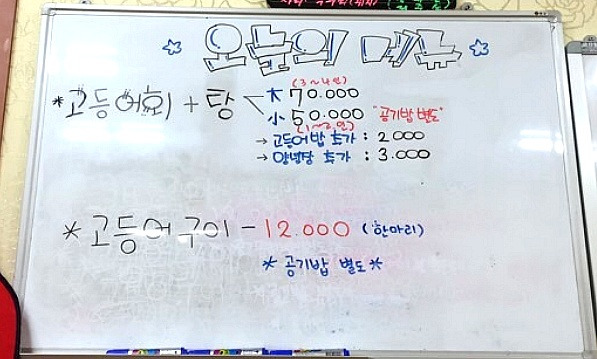 ☆ 오늘의 메뉴 ☆
(3~4인)
*고등어회 + 탕 大 70.000
小 50.000 "공기밥 별도"
(1~2인)
→ 고등어밥 추가 : 2000
→ 양념장 추가 : 3.000
* 고등어 구이 - 12.000 (한마리)
* 공기밥 별도 *